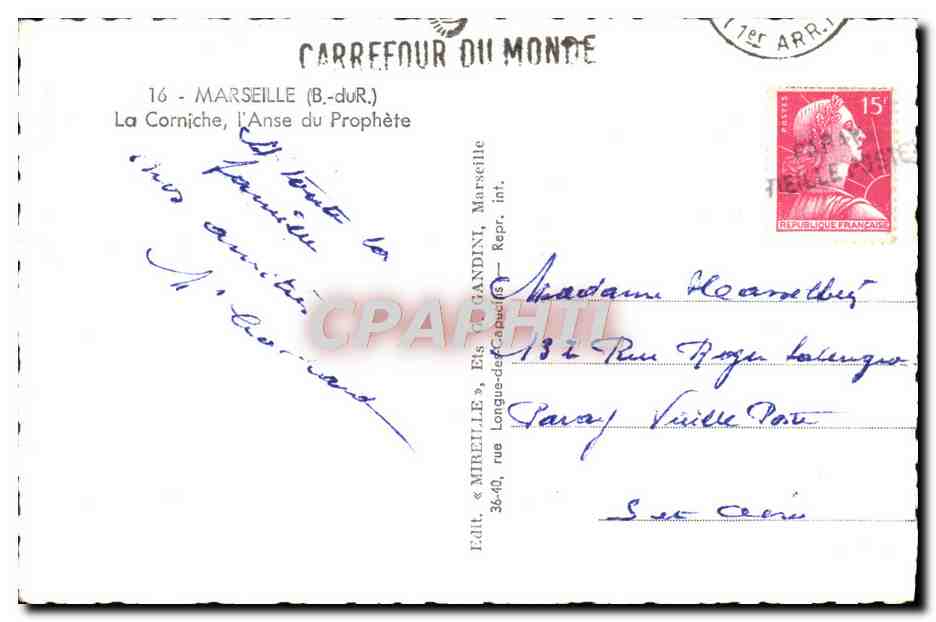 CARREFOUR DU MONDE
(1er ARR.)
16 - MARSEILLE (B.-duR.)
La Corniche, l'Anse du Prophète
A toute la
famille
mos amitiés
Edit. « MIREILLE », Ets G. GANDINI, Marseille
36-40, rue Longue-des-Capucins — Repr. int.
POSTES
15F
REPUBLIQUE FRANÇAISE
VIEILLE POSTE
CPAPHIL
Madame
132 Rue Roger Salengro
Paray Vieille Poste
S et Oise